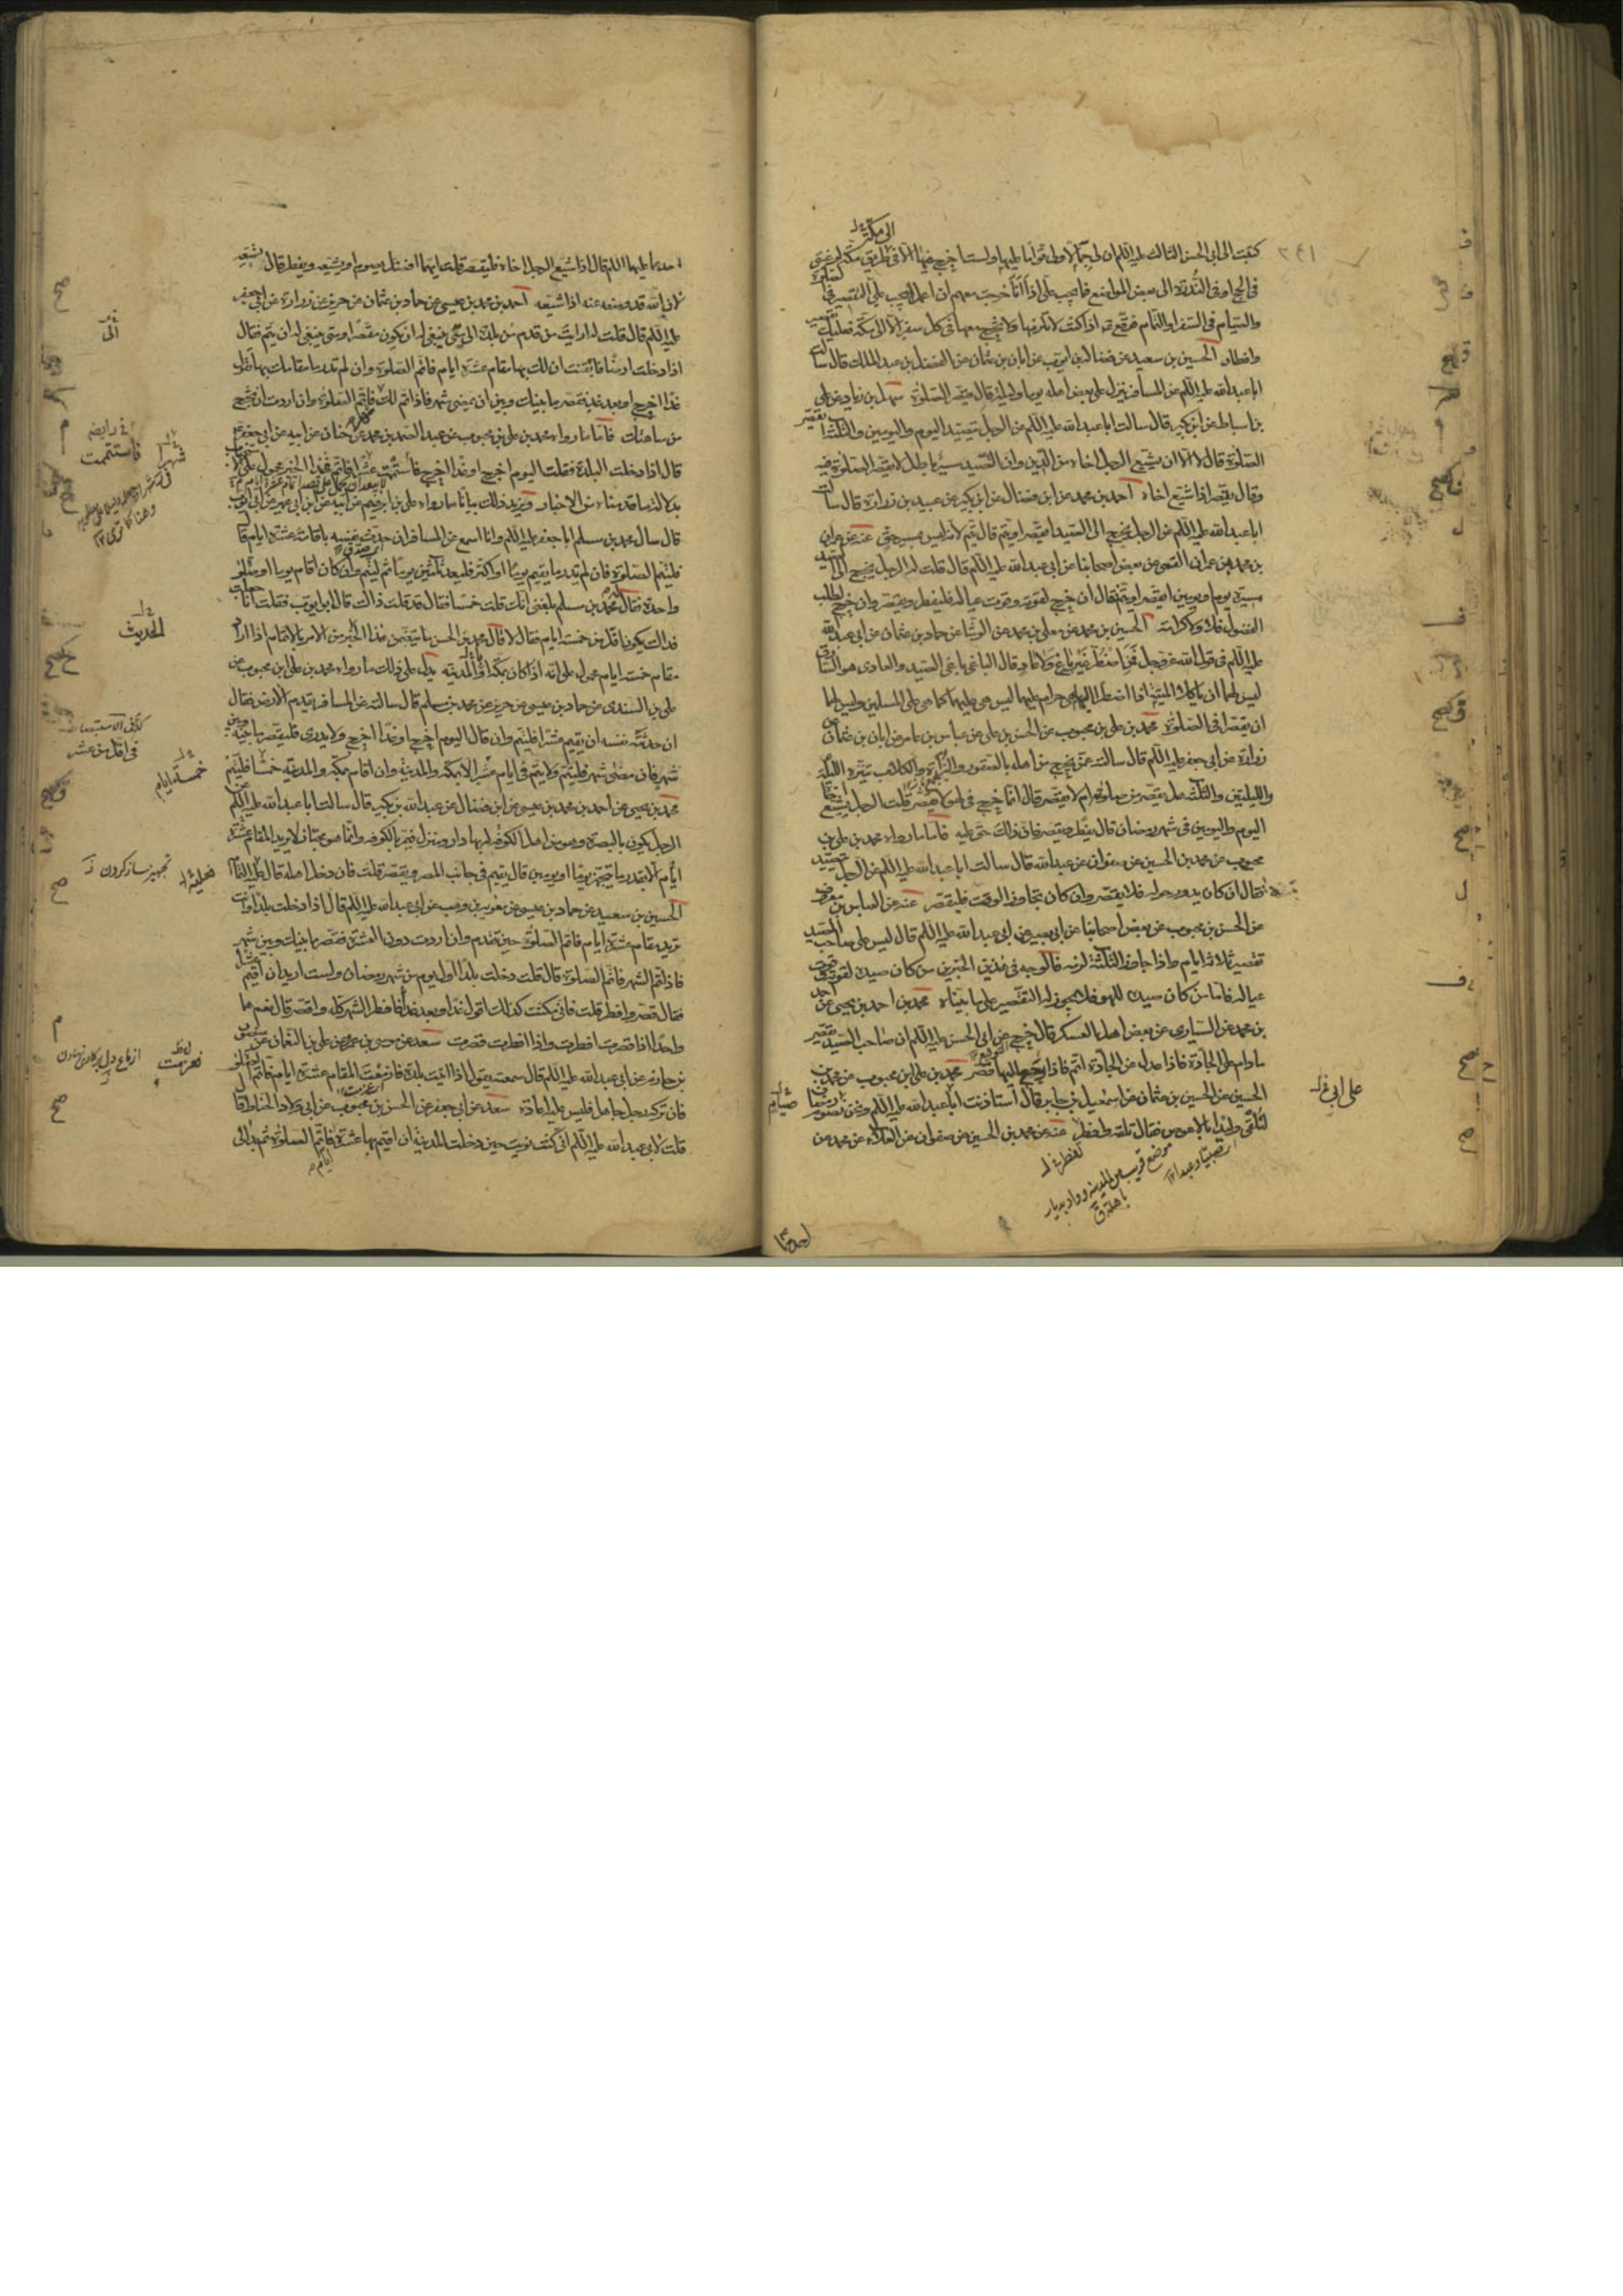 كتبت الى ابى الحسن الثالث عليه السلم ان لى جمالا ولى قواما عليها ولست اخرج فيها الا فى طريق مكة لرغبتى
فى الحج او فى الندرة الى بعض المواضع فما يجب على اذا انا خرجت معهم ان اعمل ايجب على التقصير فى الصلوة
والصيام فى السفر او التمام فوقع اذا كنت لا تلزمها ولا تخرج معها فى كل سفر الا الى مكة فعليك تقصير
وافطار الحسين بن سعيد عن فضالة بن ايوب عن ابان بن عثمان عن الفضل بن عبد الملك قال سالت
ابا عبد الله عليه السلم عن المسافر ينزل على بعض اهله يوما وليلة قال يقصر الصلوة سهل بن زياد عن على
بن اسباط عن ابن بكير قال سالت ابا عبد الله عليه السلم عن الرجل يتصيد اليوم واليومين والثلثة ايقصر
الصلوة قال لا الا ان يشيع الرجل اخاه من الدين وان التصيد مسير باطل لا يقصر الصلوة فيه
وقال يقصر اذا شيع اخاه احمد بن محمد عن ابن فضال عن ابن بكير عن عبيد بن زرارة قال سالت
ابا عبد الله عليه السلم عن الرجل يخرج الى الصيد ايقصر او يتم قال يتم لانه ليس بمسير حق عنه عن عمران
بن محمد بن عمران القمى عن بعض اصحابنا عن ابى عبد الله عليه السلم قال قلت له الرجل يخرج الى الصيد
مسيرة يوم او يومين ايقصر او يتم فقال ان خرج لقوته وقوت عياله فليفطر وليقصر وان خرج لطلب
الفضول فلا ولا كرامة الحسين بن محمد عن معلى بن محمد عن الوشا عن حماد بن عثمان عن ابى عبد الله
عليه السلم فى قول الله عز وجل فمن اضطر غير باغ ولا عاد قال الباغى باغى الصيد والعادى هو السارق
ليس لهما ان ياكلا الميتة اذا اضطرا اليها هى حرام عليهما ليس هى عليهما كما هى على المسلمين وليس لهما
ان يقصرا فى الصلوة محمد بن على بن محبوب عن الحسن بن على عن عباس بن عامر عن ابان بن عثمان عن
زرارة عن ابى جعفر عليه السلم قال سالته عمن يخرج من اهله بالصقورة والبزاة والكلاب يتنزه الليلة
والليلتين والثلثة هل يقصر من صلوته ام لا يقصر قال انما خرج فى لهو لا يقصر قلت الرجل يشيع اخاه
اليوم واليومين فى شهر رمضان قال يفطر ويقصر فان ذلك حق عليه فاما ما رواه محمد بن على بن
محبوب عن محمد بن الحسين عن صفوان عن عبد الله قال سالت ابا عبد الله عليه السلم عن الرجل يتصيد
فقال ان كان يدور حوله فلا يقصر وان كان تجاوز الوقت فليقصر عنه عن العباس بن معروف
عن الحسن بن محبوب عن بعض اصحابنا عن ابى بصير عن ابى عبد الله عليه السلم قال ليس على صاحب الصيد
تقصير ثلاثة ايام واذا جاوز الثلثة لزمه فالوجه فى هذين الخبرين من كان صيده لقوته وقوت
عياله فاما من كان صيده للهو فلا يجوز له التقصير على ما بيناه محمد بن احمد بن يحيى عن احمد
بن محمد عن السيارى عن بعض اهل العسكر قال خرج عن ابى الحسن عليه السلم ان صاحب الصيد يقصر
مادام على الجادة فاذا عدل عن الجادة اتم فاذا رجع اليها قصر محمد بن على بن محبوب عن محمد بن
الحسين عن الحسين بن عثمان عن اسمعيل بن جابر قال استاذنت ابا عبد الله عليه السلم ونحن نصوم رمضان
لنلقى وليدا بالاعوص فقال تلقه وافطر عنه عن محمد بن الحسين عن صفوان عن العلاء عن محمد عن
احدهما
احدهما عليهما السلم قال اذا شيع الرجل اخاه فليقصر قلت ايهما افضل يصوم او يشيعه ويفطر قال يشيعه
لان الله قد وضعه عنه اذا شيعه احمد بن محمد بن عيسى عن حماد بن عثمان عن حريز عن زرارة عن ابى جعفر
عليه السلم قال قلت له ارايت من قدم من بلدة الى متى ينبغى له ان يكون مقصرا ومتى ينبغى له ان يتم فقال
اذا دخلت ارضا فايقنت ان لك بها مقام عشرة ايام فاتم الصلوة وان لم تدر ما مقامك بها تقول
غدا اخرج او بعد غد فقصر ما بينك وبين ان يمضى شهر فاذا تم لك فاتم الصلوة وان اردت ان تخرج
من ساعتك فاما ما رواه محمد بن على بن محبوب عن عبد الصمد بن محمد عن حنان عن ابيه عن ابى جعفر
قال اذا دخلت البلدة فقلت اليوم اخرج او غدا اخرج فاستتمت عشرا فاتم فهذا الخبر محمول على
بدلالة ما قدمناه من الاخبار ويزيد ذلك بيانا ما رواه على بن ابرهيم عن ابيه عن ابن ابى عمير عن ابى ايوب
قال سال محمد بن مسلم ابا جعفر عليه السلم وانا اسمع عن المسافر ان حدث نفسه باقامة عشرة ايام قال
فليتم الصلوة فان لم يدر ما يقيم يوما او اكثر فليعد ثلثين يوما ثم ليتم وان كان اقام يوما او صلوة
واحدة فقال له محمد بن مسلم بلغنى انك قلت خمسا فقال قد قلت ذاك قال ابو ايوب فقلت انا جعلت
فداك يكون اقل من خمسة ايام فقال لا قال محمد بن الحسن ما يتضمن هذا الخبر من الامر بالاتمام اذا اراد
مقام خمسة ايام محمول على انه اذا كان بمكة او المدينة يدل على ذلك ما رواه محمد بن على بن محبوب عن
على بن السندى عن حماد بن عيسى عن حريز عن محمد بن مسلم قال سالته عن المسافر يقدم الارض فقال
ان حدثته نفسه ان يقيم عشرا فليتم وان قال اليوم اخرج او غدا اخرج ولا يدرى فليقصر ما بينه وبين
شهر فان مضى شهر فليتم ولا يتم فى اقل من عشرة الا بمكة والمدينة وان اقام بمكة والمدينة خمسا فليتم
محمد بن يحيى عن احمد بن محمد بن عيسى عن ابن فضال عن عبد الله بن بكير قال سالت ابا عبد الله عليه السلم عن
الرجل يكون بالبصرة وهو من اهل الكوفة له بها دار ومنزل فيمر بالكوفة وانما هو مجتاز لا يريد المقام
الا بقدر ما يتجهز يوما او يومين قال يقيم فى جانب المصر ويقصر قلت فان دخل اهله قال عليه التمام
الحسين بن سعيد عن حماد بن عيسى عن معوية بن وهب عن ابى عبد الله عليه السلم قال اذا دخلت بلدا وانت
تريد مقام عشرة ايام فاتم الصلوة حين تقدم وان اردت دون العشرة فقصر ما بينك وبين شهر
فاذا تم الشهر فاتم الصلوة قال قلت دخلت بلدا اول يوم من شهر رمضان ولست اريد ان اقيم عشرا
فقال قصر وافطر قلت فانى مكثت كذلك اقول غدا وبعد غد فافطر الشهر كله واقصر قال نعم هما
واحد اذا قصرت افطرت واذا افطرت قصرت سعد عن موسى بن عمر عن على بن النعمان عن منصور
بن حازم عن ابى عبد الله عليه السلم قال سمعته يقول اذا اتيت بلدة فازمعت المقام عشرة ايام فاتم الصلوة
فان تركه رجل جاهل فليس عليه اعادة سعد عن ابى جعفر عن الحسن بن محبوب عن ابى ولاد الحناط قال
قلت لابى عبد الله عليه السلم انى كنت نويت حين دخلت المدينة ان اقيم بها عشرة فاتم الصلوة ثم بدا لى